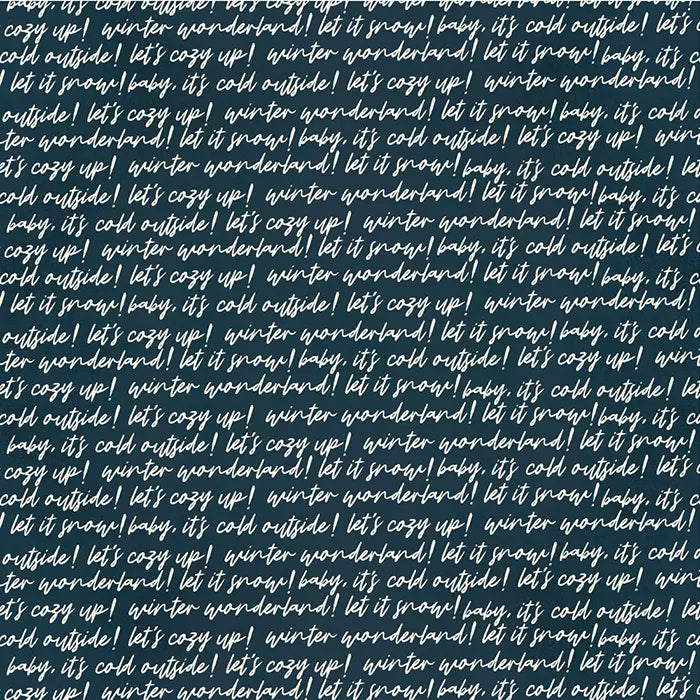 cold outside! let's cozy up! winter wonderland! let it snow! baby, it's
cozy up! winter wonderland! let it snow! baby, it's cold outside! let's
cold outside! let's cozy up! winter wonderland! let it snow! baby, it's c
! let it snow! baby, it's cold outside! let's cozy up! winter wonderland!
outside! let's cozy up! winter wonderland! let it snow! baby, it's cold
ter wonderland! let it snow! baby, it's cold outside! let's cozy up! win
et's cozy up! winter wonderland! let it snow! baby, it's cold outside! let
cold outside! let's cozy up! winter wonderland! let it snow! baby, it's c
baby, it's cold outside! let's cozy up! winter wonderland! let it snow!
cozy up! winter wonderland! let it snow! baby, it's cold outside! let's
cold outside! let's cozy up! winter wonderland! let it snow! baby, it's c
! let it snow! baby, it's cold outside! let's cozy up! winter wonderland!
outside! let's cozy up! winter wonderland! let it snow! baby, it's cold
ter wonderland! let it snow! baby, it's cold outside! let's cozy up! win
et's cozy up! winter wonderland! let it snow! baby, it's cold outside! let
cold outside! let's cozy up! winter wonderland! let it snow! baby, it's c
baby, it's cold outside! let's cozy up! winter wonderland! let it snow!
cozy up! winter wonderland! let it snow! baby, it's cold outside! let's
cold outside! let's cozy up! winter wonderland! let it snow! baby, it's c
! let it snow! baby, it's cold outside! let's cozy up! winter wonderland!
outside! let's cozy up! winter wonderland! let it snow! baby, it's cold
ter wonderland! let it snow! baby, it's cold outside! let's cozy up! win
et's cozy up! winter wonderland! let it snow! baby, it's cold outside! let
cold outside! let's cozy up! winter wonderland! let it snow! baby, it's c
baby, it's cold outside! let's cozy up! winter wonderland! let it snow!
cozy up! winter wonderland! let it snow! baby, it's cold outside! let's